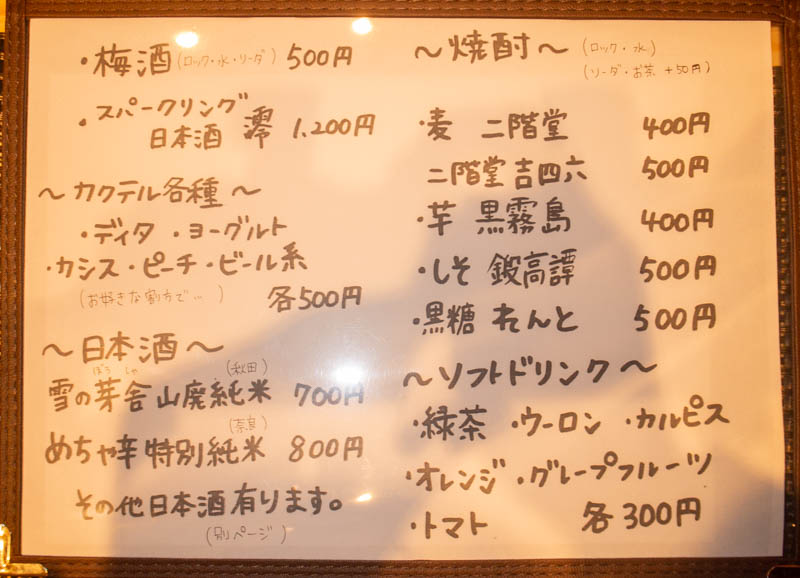 ・梅酒(ロック・水・ソーダ) 500円
・スパークリング
日本酒 澪 1,200円
〜カクテル各種〜
・ディタ ・ヨーグルト
・カシス・ピーチ・ビール系
(お好きな割方で… ) 各500円
〜日本酒〜
(秋田)
ぼう しゃ
雪の芽舎 山廃純米 700円
(奈良)
めちゃ辛 特別純米 800円
その他日本酒有ります。
(別ページ)
〜焼酎〜 (ロック・水)
(ソーダ・お茶 +50円)
・麦 二階堂 400円
二階堂吉四六 500円
・芋 黒霧島 400円
・しそ 鍛高譚 500円
・黒糖 れんと 500円
〜ソフトドリンク〜
・緑茶 ・ウーロン ・カルピス
・オレンジ ・グレープフルーツ
・トマト 各300円